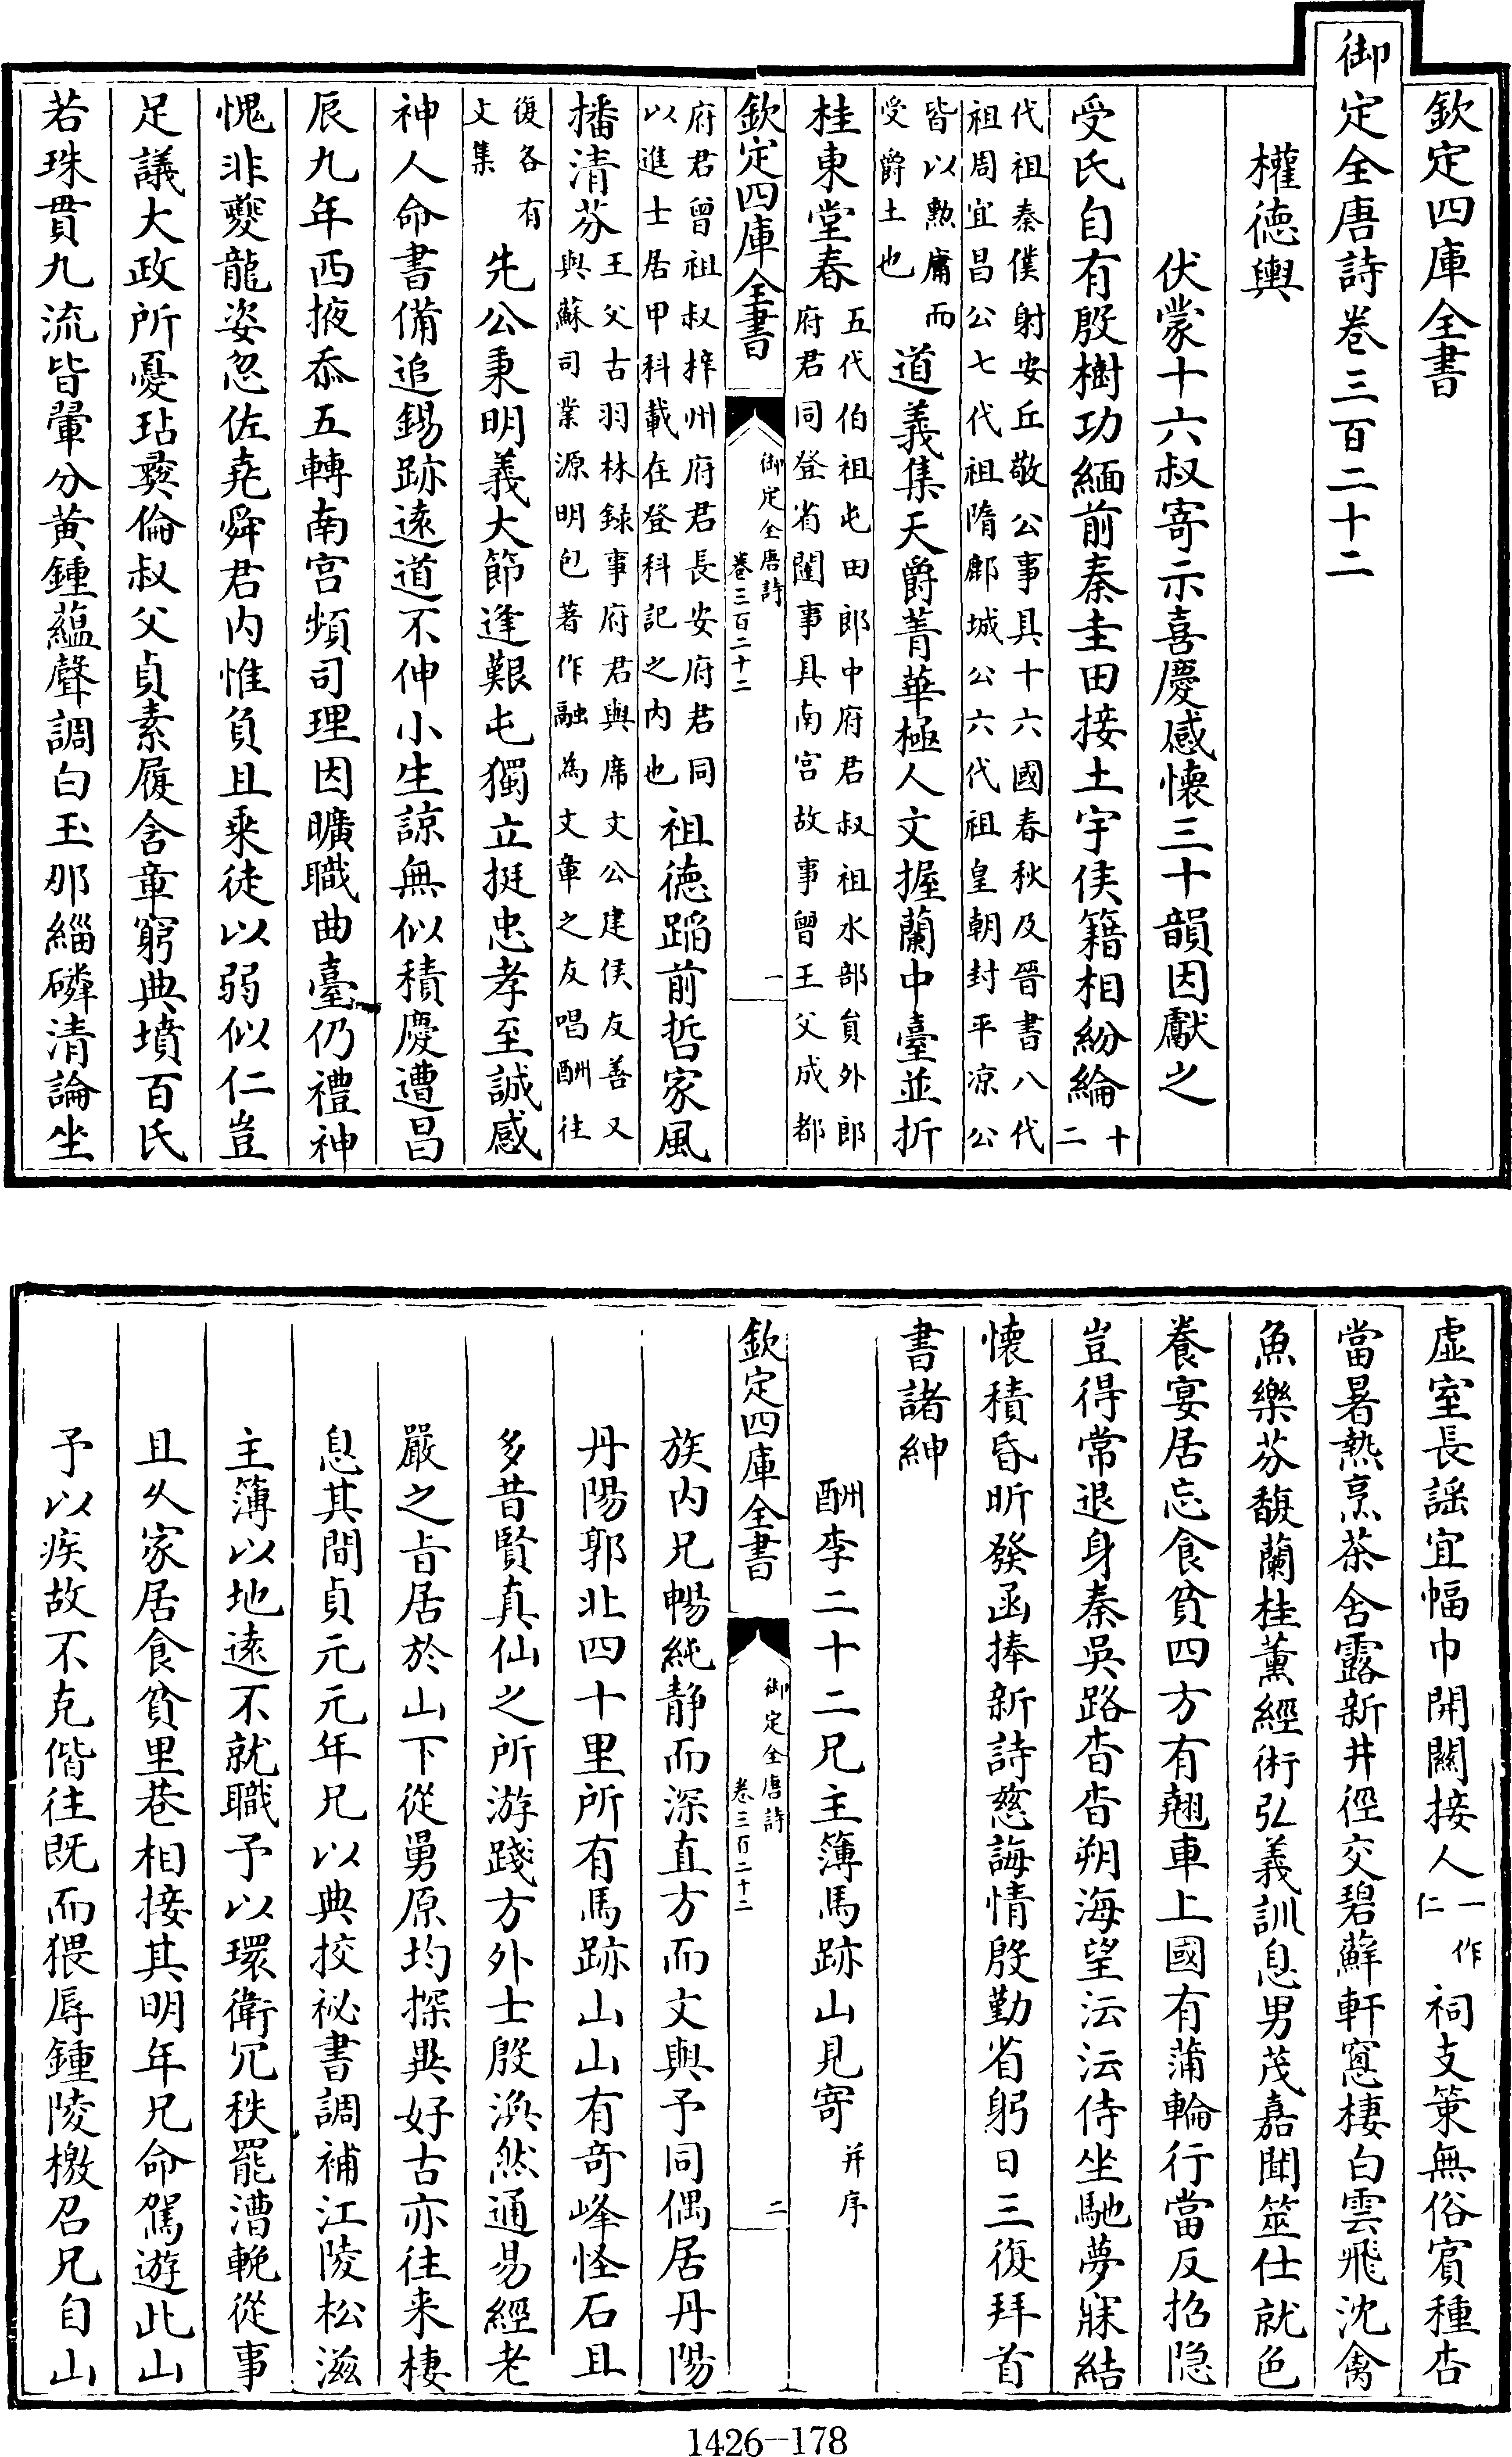 欽定四庫全書
御定全唐詩卷三百二十二
權德輿
伏蒙十六叔寄示喜慶感懷三十韻因獻之
受氏自有殷樹功緬前秦圭田接土宇侯籍相紛綸十二
代祖秦僕射安丘敬公事具十六國春秋及晉書八代
祖周宜昌公七代祖隋鄜城公六代祖皇朝封平凉公
皆以勲庸而受爵土也道義集天爵菁華極人文握蘭中臺並折
桂東堂春五代伯祖屯田郎中府君叔祖水部員外郎
府君同登省闥事具南宫故事曾王父成都
欽定四庫全書
御定全唐詩
卷三百二十二
一
府君曾祖叔梓州府君長安府君同
以進士居甲科載在登科記之内也祖徳蹈前哲家風
播清芬王父古羽林録事府君與席文公建侯友善又
與蘇司業源明包著作融為文章之友唱酬往
復各有文集先公秉明義大節逢艱屯獨立挺忠孝至誠感
神人命書備追錫跡遠道不伸小生諒無似積慶遭昌
辰九年西掖忝五轉南宫頻司理因曠職曲臺仍禮神
愧非夔龍姿忽佐堯舜君内惟負且乘徒以弱似仁豈
足議大政所憂玷彜倫叔父貞素履含章窮典墳百氏
若珠貫九流皆翬分黄鍾蘊聲調白玉那緇磷清論坐
虛室長謡宜幅巾開關接人一作仁祠支策無俗賔種杏
當暑熱烹茶含露新井徑交碧蘚軒窻棲白雲飛沈禽
魚樂芬馥蘭桂薰經術弘義訓息男茂嘉聞筮仕就色
養宴居忘食貧四方有翹車上國有蒲輪行當反招隐
豈得常退身秦吳路杳杳朔海望沄沄侍坐馳夢寐結
懷積昏昕發函捧新詩慈誨情殷勤省躬日三復拜首
書諸紳
酬李二十二兄主簿馬跡山見寄并序
欽定四庫全書
御定全唐詩
卷三百二十二
二
族内兄暢純静而深直方而文與予同偶居丹陽
丹陽郭北四十里所有馬跡山山有奇峰怪石且
多昔賢真仙之所游踐方外士殷渙然通易經老
嚴之旨居於山下從舅原均探異好古亦往来棲
息其間貞元元年兄以典挍祕書調補江陵松滋
主簿以地遠不就職予以環衛冗秩罷漕輓從事
且久家居食貧里巷相接其明年兄命駕遊此山
予以疾故不克偕往既而猥辱鍾陵檄召兄自山
1426--178